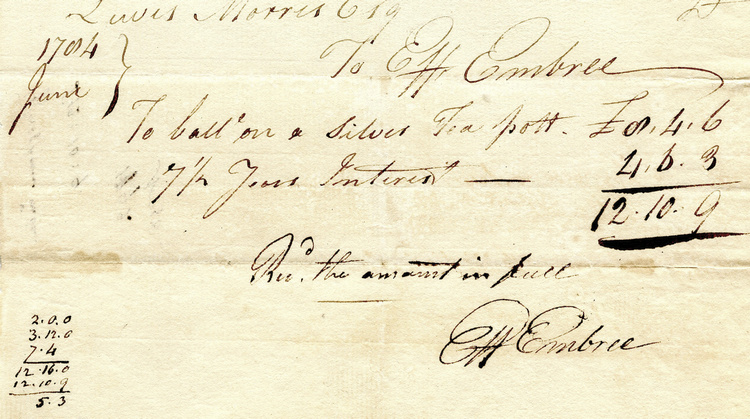 Lewis Morris Esq
1784
June
To Effm Embree
To ballce on a Silver Tea pott. £8.4.6
7½ Years Interest — 4.6.3
12.10.9
Recd. the amount in full
Effm Embree
2.0.0
3.12.0
7.4
12.16.0
12.10.9
5.3